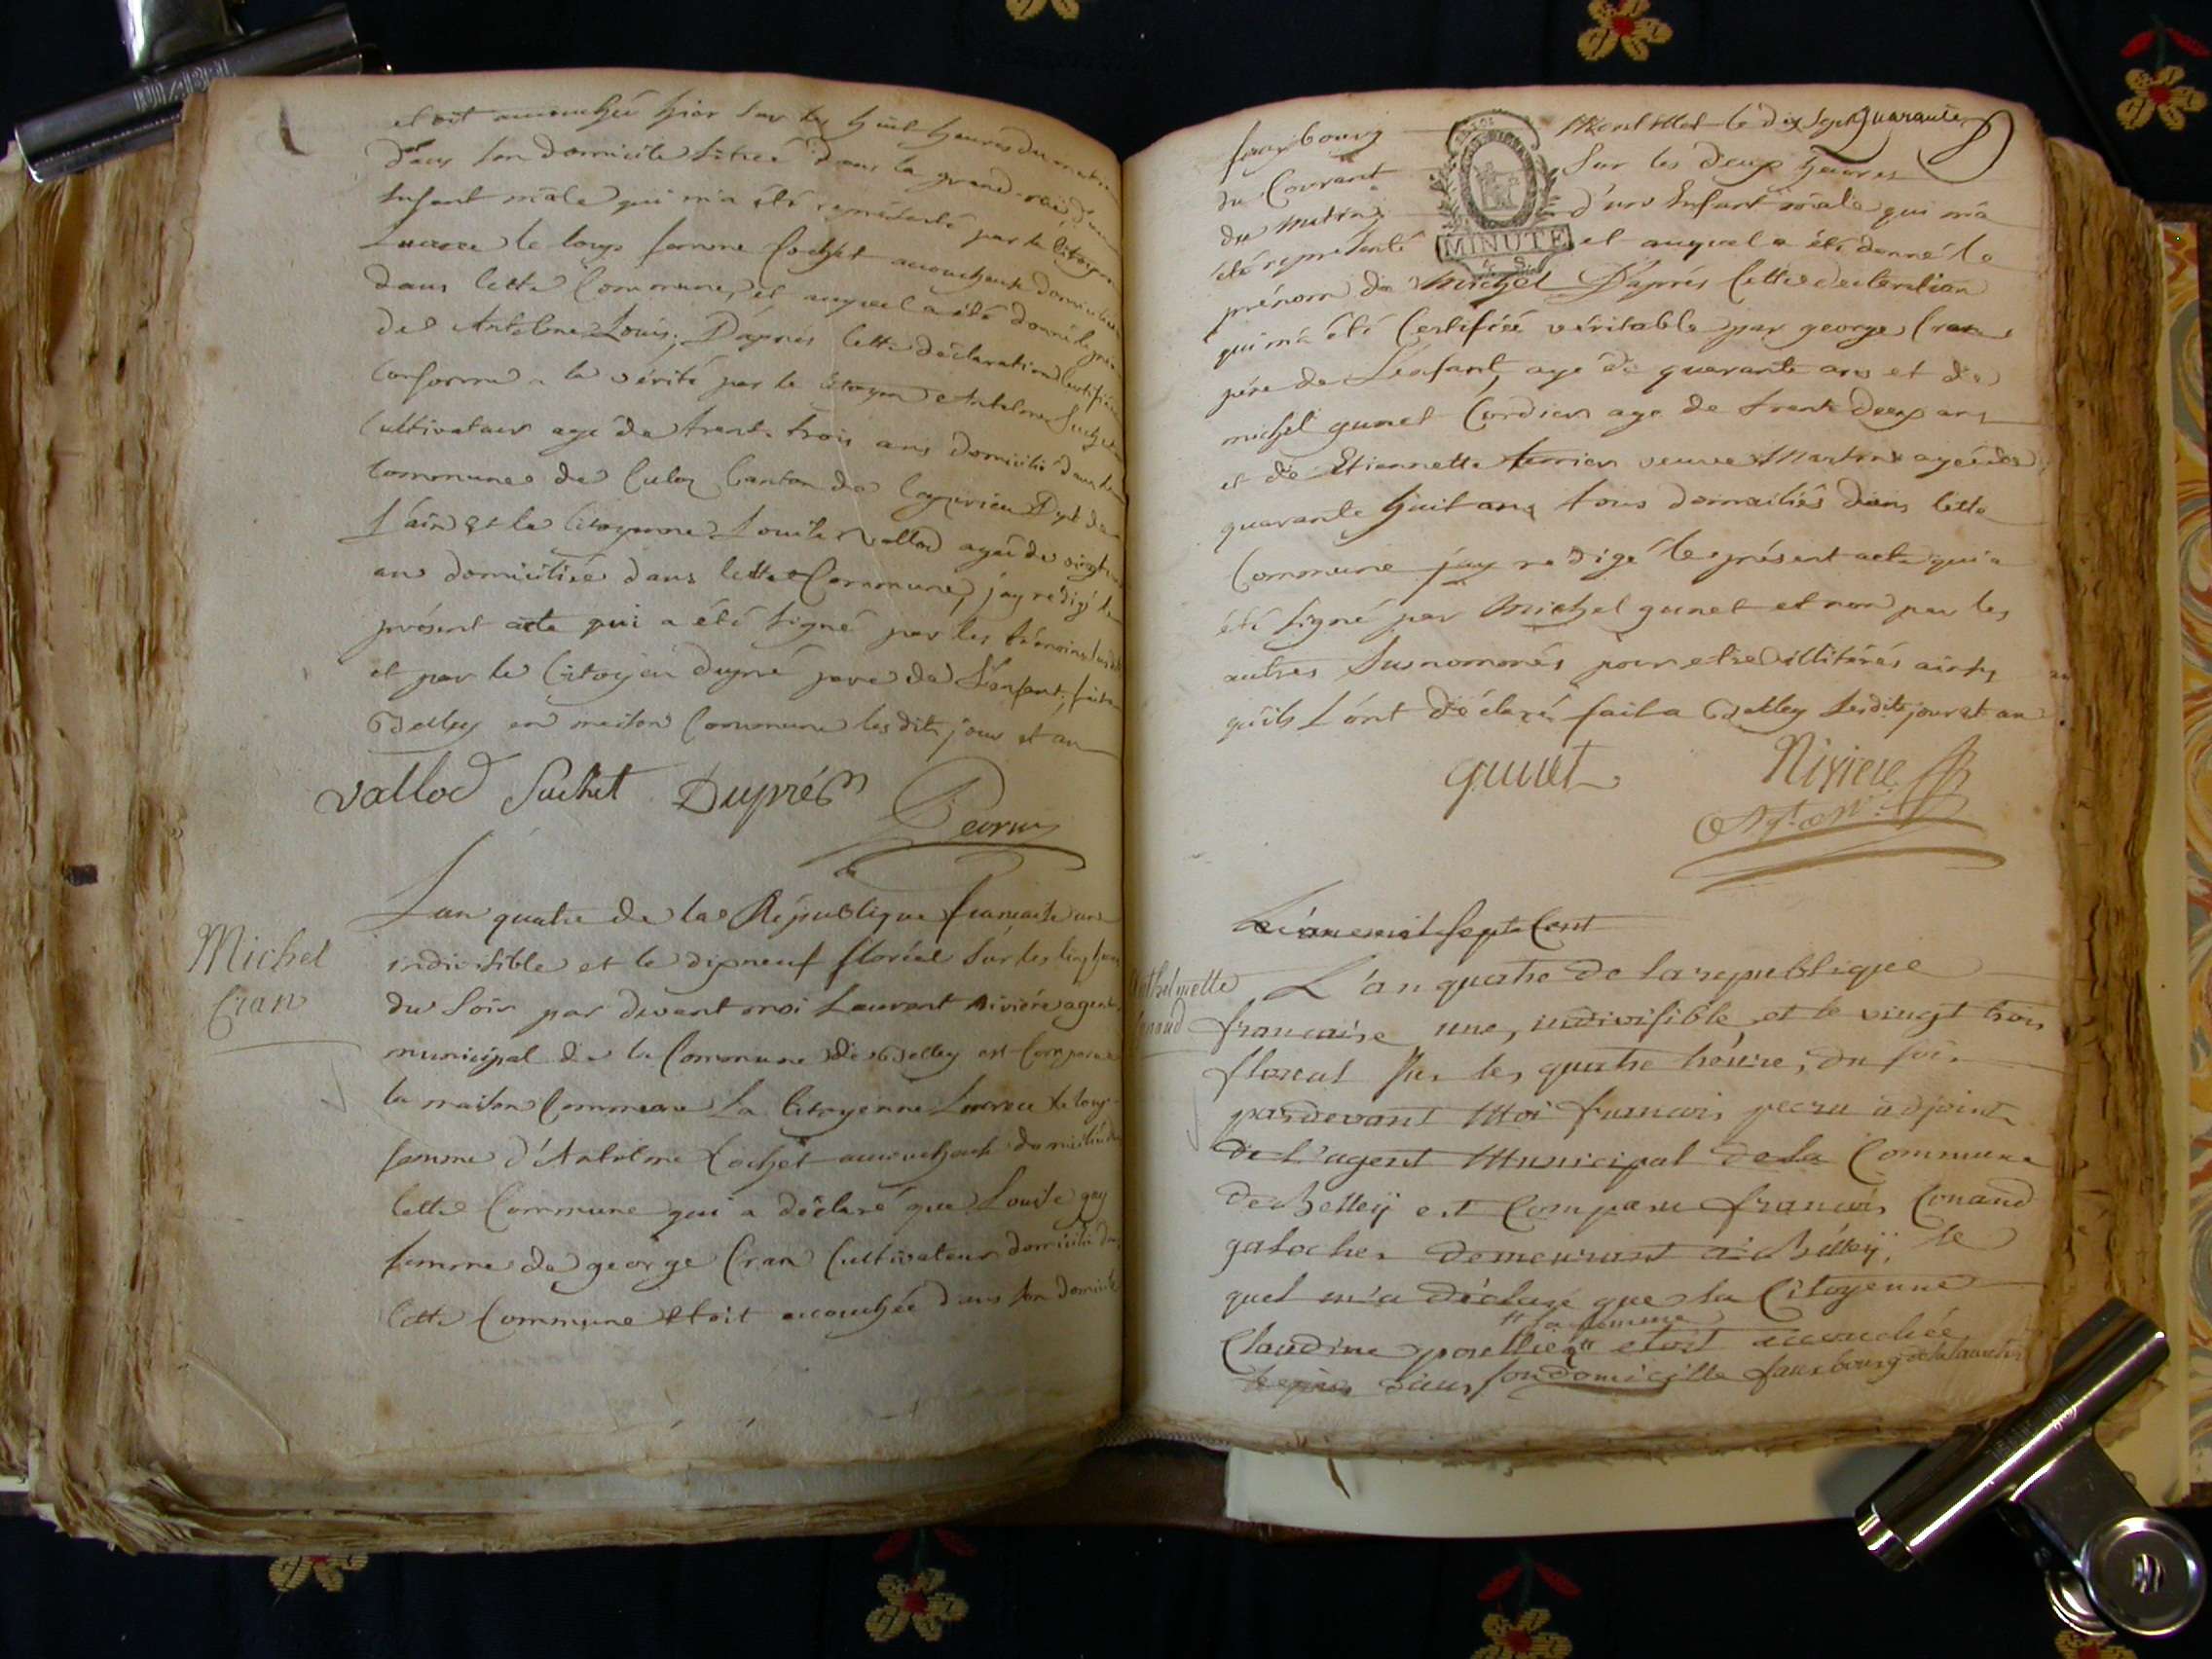 etoit accouchée hier sur les huit heures du matin
dans son domicile situé dans la grand rue, d'un
enfant mâle qui m'a été représenté par la Citoyenne
Lucrece le loup femme Cochet accoucheuse domiciliée
dans Cette Commune, et auquel a été donné le prénom
de Antelme Louis; D'aprés Cette déclaration Certifiée
Conforme a la vérité par le Citoyen Antelme Suchet
Cultivateur agé de trente trois ans domicilié dans la
Commune de Culoz Canton de Dept de
l'ain et la Citoyenne Louise Vallod agée de vingt
ans domiciliée dans Cette Commune, j'ay redigé le
présent acte qui a été signé par les témoins susdits
et par le Citoyen Dupré pere de L'enfant, fait a
Belley en maison Commune lesdits jour et an
Vallod Suchet Dupré
Pecru
Michel
Cran
L'an quatre de la République francaise une
indivisible et le dixneuf floréal sur les cinq heures
du soir par devant moi Laurent Riviére agent
municipal de la Commune de Belley est Comparue
la maison Commune La Citoyenne Lucrece le loup
femme d'Antelme Cochet accoucheuse domiciliée
Cette Commune qui a déclaré que Louise gay
femme de george Cran Cultivateur domicilié dans
Cette Commune etoit accouchée dans son domicile
quarante
fauxbourg le dix sept
du Courant sur les deux heures
du matin d'un Enfant mâle qui m'a
été représenté et auquel a été donné le
MINUTE
prénom de Michel D'aprés Cette declaration
qui m'a été Certifiée véritable par george Cran
pére de L'enfant, agé de quarante ans et de
michel gunet Cordier agé de trente deux ans
et de Etiennette terrier veuve Martin agée de
quarante huit ans tous domiciliés dans Cette
Commune j'ay redigé le présent acte qui a
été signé par Michel gunet et non par les
autres susnommés pour etre illitérés ainsy
qu'ils L'ont déclaré fait a Belley lesdits jour et an
gunet Riviere
agt. m.
L'an mil sept Cent
Anthelmette
Conand
L'an quatre de la republique
francaise une, indivisible et le vingt trois
floreal sur les quatre heure, du soir
pardevant Moi francois pecru adjoint
de L'agent Municipal de la Commune
de Belley est Comparu francois Conand
galocher demeurant a Belley, le
quel m'a déclaré que la Citoyenne
"sa femme
Claudine " etoit accouchée
dans son domicille fauxbourg